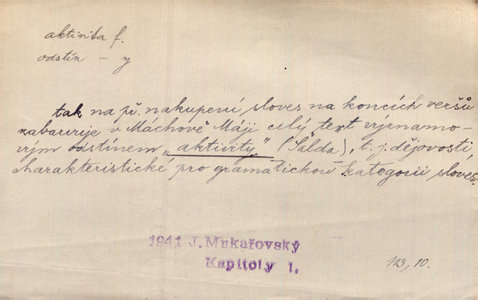 aktivita f.
odstín – y
tak na př. nakupení sloves na koncích veršů
zabarvuje v Máchově Máji celý text významo-
vým odstínem „aktivity" (Šalda), t. j. dějovosti,
charakteristické pro gramatickou kategorii slovesa.
1941 J. Mukařovský
Kapitoly I.
113, 10.